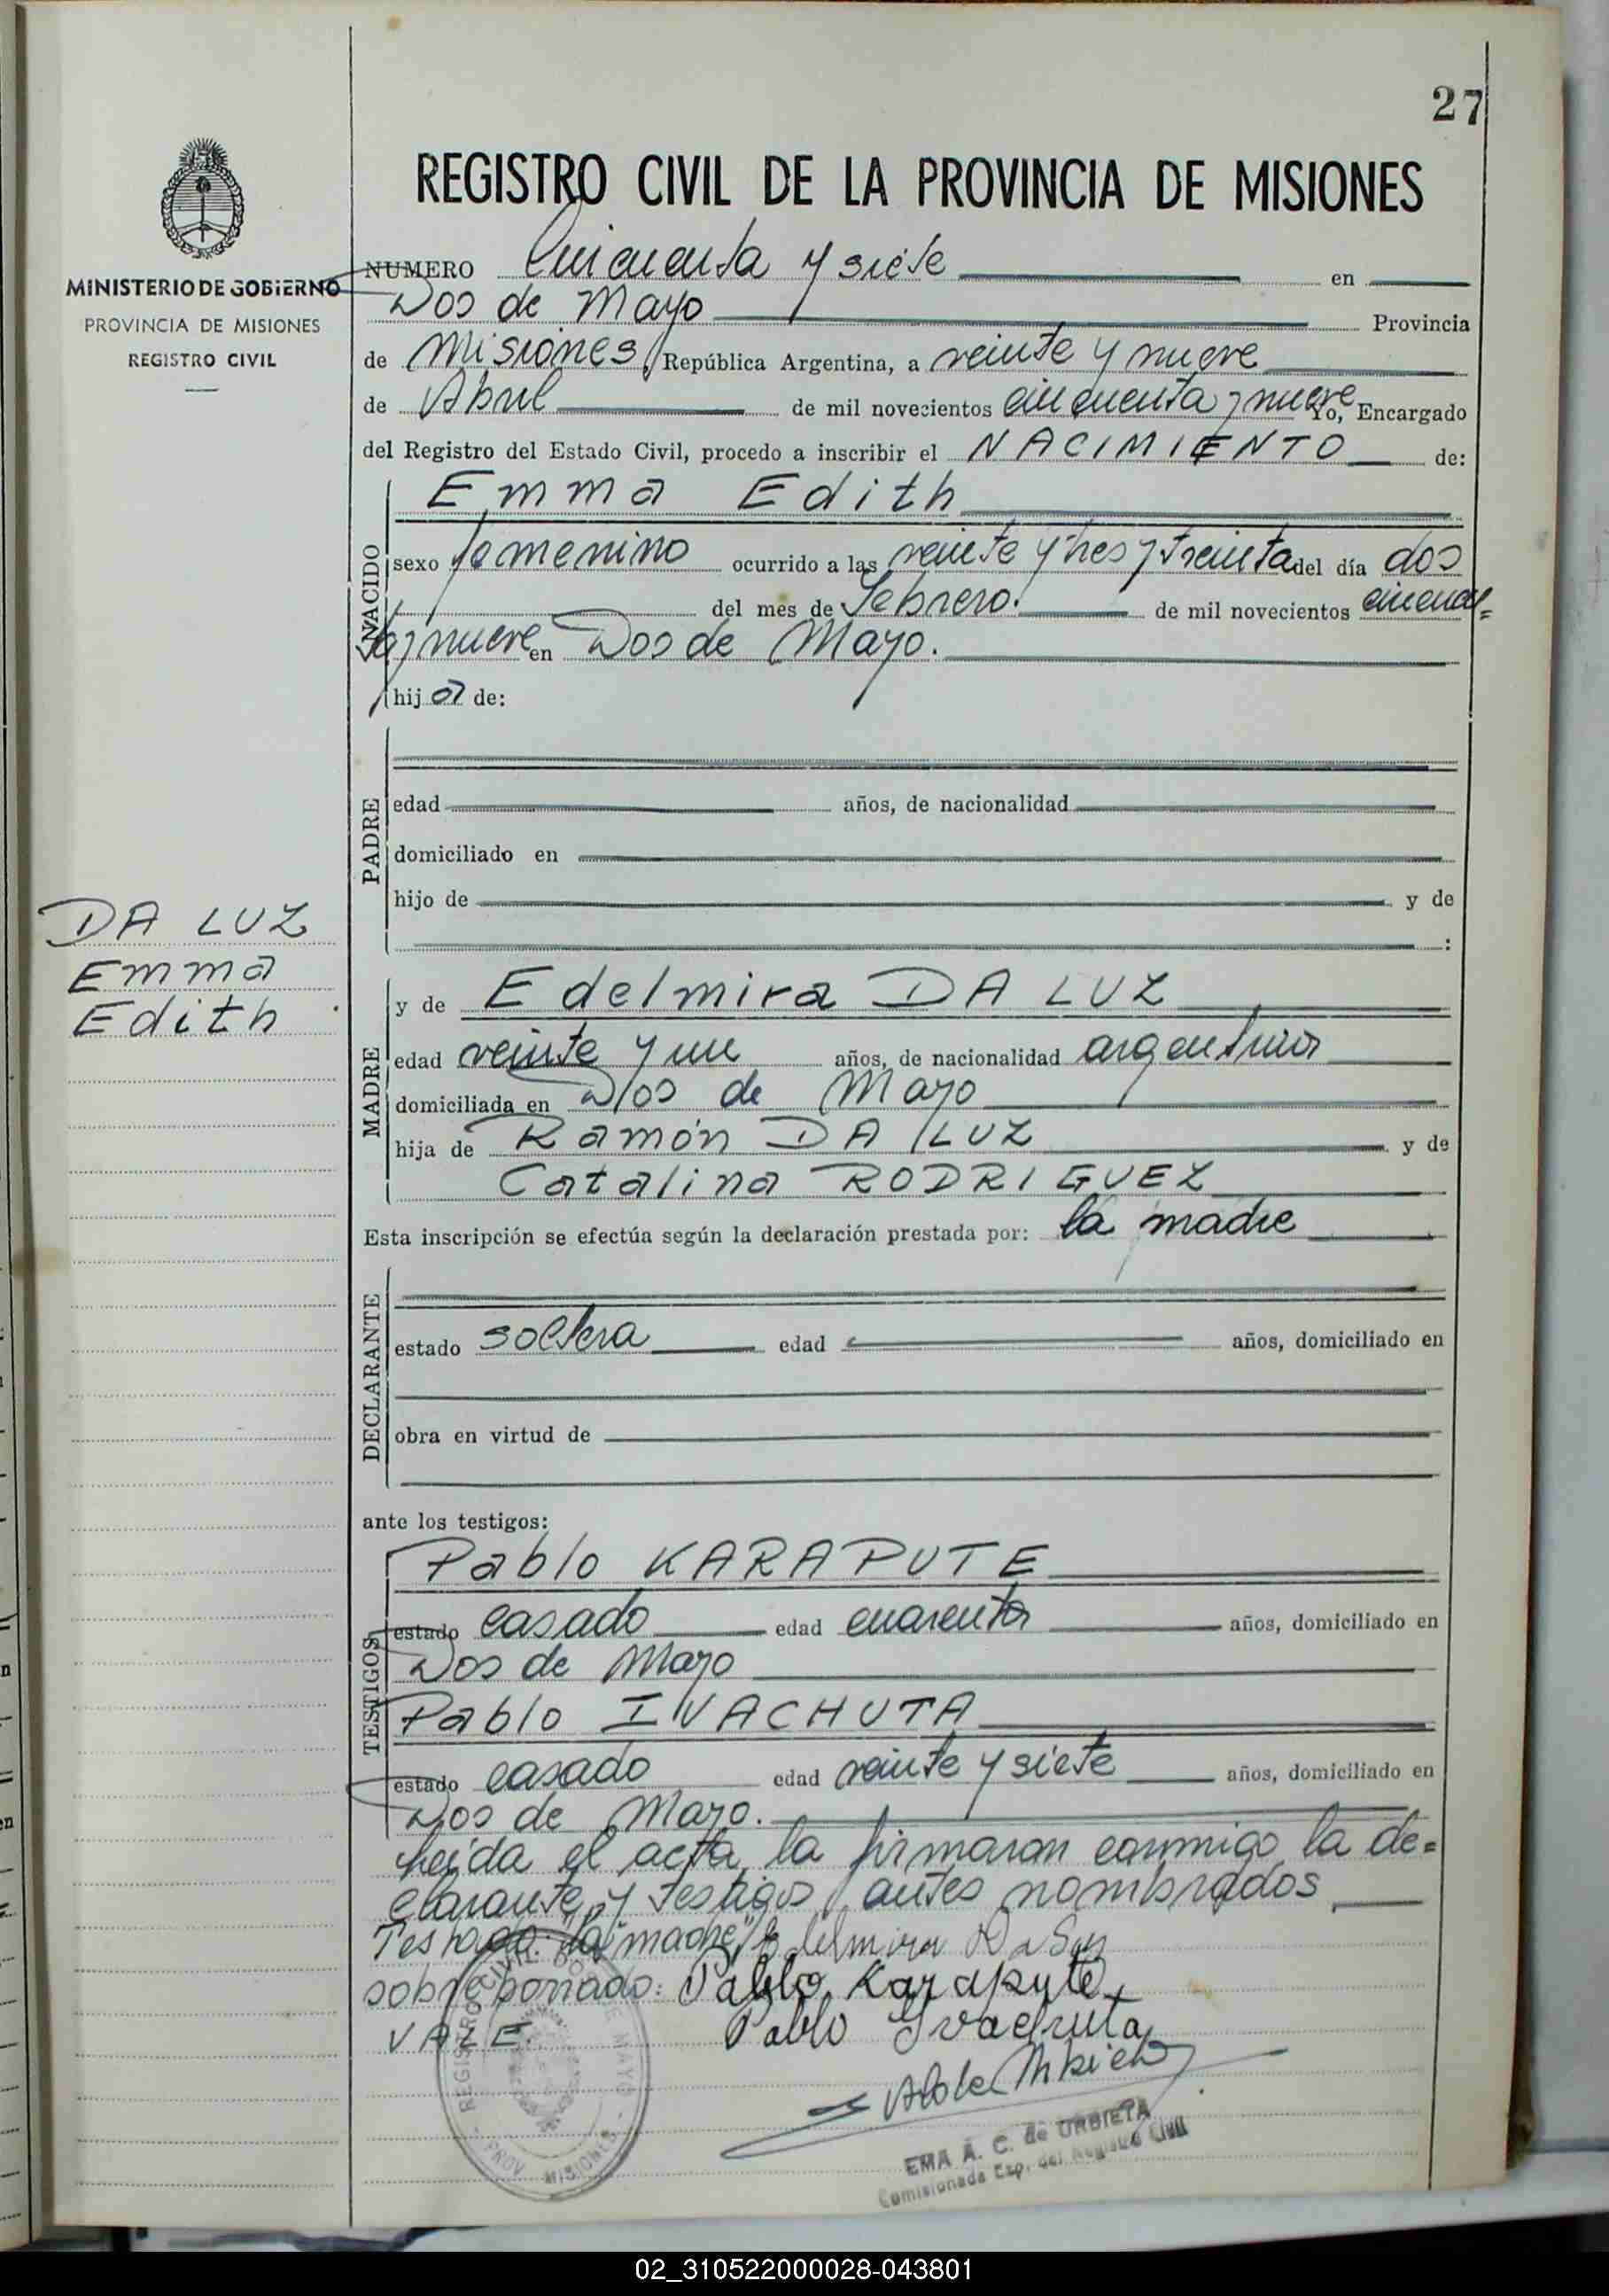 27
REGISTRO CIVIL DE LA PROVINCIA DE MISIONES
MINISTERIO DE GOBIERNO
PROVINCIA DE MISIONES
REGISTRO CIVIL
NUMERO Cincuenta y siete en
Dos de Mayo Provincia
de Misiones, República Argentina, a veinte y nueve
de Abril de mil novecientos cincuenta y nueve Yo, Encargado
del Registro del Estado Civil, procedo a inscribir el NACIMIENTO de:
NACIDO
Emma Edith
sexo femenino ocurrido a las veinte y tres y treinta del día dos
del mes de Febrero. de mil novecientos cincuen=
ta y nueve en Dos de Mayo.
hij a de:
PADRE
edad años, de nacionalidad
domiciliado en
hijo de y de
:
DA LUZ
Emma
Edith
MADRE
y de Edelmira DA LUZ
edad veinte y un años, de nacionalidad argentina
domiciliada en Dos de Mayo
hija de Ramón DA LUZ y de
Catalina RODRIGUEZ
Esta inscripción se efectúa según la declaración prestada por: la madre
DECLARANTE
estado soltera edad años, domiciliado en
obra en virtud de
ante los testigos:
TESTIGOS
Pablo KARAPUTE
estado casado edad cuarenta años, domiciliado en
Dos de Mayo
Pablo IVACHUTA
estado casado edad veinte y siete años, domiciliado en
Dos de Mayo.
Leída el acta, la firmaron conmigo la de=
clarante y testigos antes nombrados
Testado: "la madre" Edelmira
sobre borrado: Pablo Karapute
VALE. Pablo Ivachuta
REGISTRO CIVIL DOS DE MAYO
PROV. MISIONES
EMA A. C. de URBIETA
Comisionada Esp. del Registro Civil
02_310522000028-043801